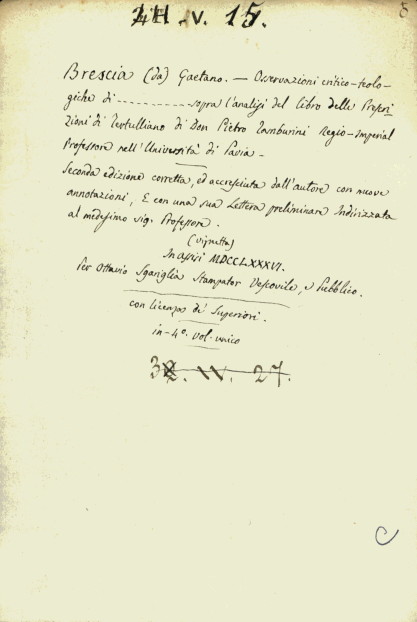 4H. V. 15.
Brescia (da) Gaetano. — Osservazioni critico-teolo-
giche di ---------- sopra l'analisi del libro delle Prescri-
zioni di Tertulliano di Don Pietro Tamburini Regio-Imperial
Professore nell'Università di Pavia -
Seconda edizione corretta, ed accresciuta dall'autore con nuove
annotazioni, E con una sua Lettera preliminare Indirizzata
al medesimo sig. Professore.
(vignetta)
In Assisi MDCCLXXXVI.
Per Ottavio Sgariglia Stampator Vescovile, e Pubblico.
con licenza de' Superiori.
in-4°. vol. unico
27.
C